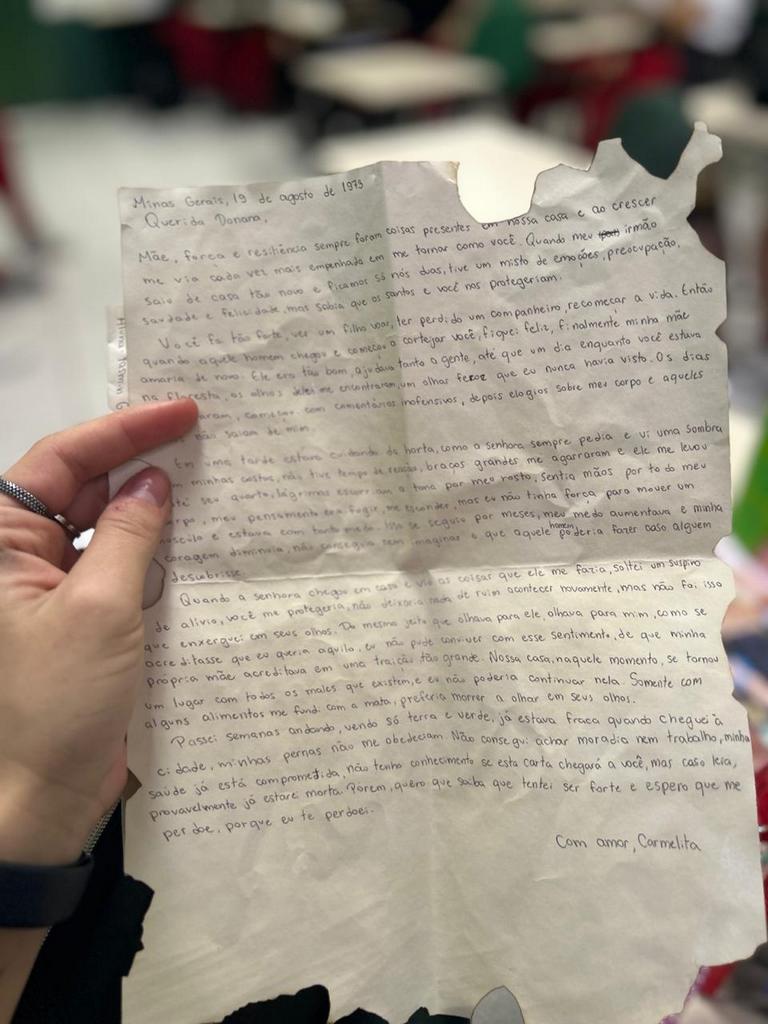 Minas Gerais, 19 de agosto de 1973
Querida Donana,
Mãe, força e resiliência sempre foram coisas presentes em nossa casa e ao crescer
me via cada vez mais empenhada em me tornar como você. Quando meu irmão
saiu de casa tão novo e ficamos só nós duas, tive um misto de emoções, preocupação,
saudade e felicidade, mas sabia que os santos e você nos protegeriam.
Você foi tão forte, ver um filho voar, ter perdido um companheiro, recomeçar a vida. Então
quando aquele homem chegou e começou a cortejar você, fiquei feliz, finalmente minha mãe
amaria de novo. Ele era tão bom, ajudava tanto a gente, até que um dia enquanto você estava
na floresta, os olhos dele me encontraram, um olhar feroz que eu nunca havia visto. Os dias
com comentários inofensivos, depois elogios sobre meu corpo e aqueles
não saiam de mim.
Em uma tarde estava cuidando da horta, como a senhora sempre pedia e vi uma sombra
minhas costas, não tive tempo de reação, braços grandes me agarraram e ele me levou
até seu quarto, lágrimas escorriam a tona por meu rosto, sentia mãos por todo meu
corpo, meu pensamento era fugir, me esconder, mas eu não tinha força para mover um
músculo e estava com tanto medo. Isso se seguiu por meses, meu medo aumentava e minha
coragem diminuia, não conseguia nem imaginar o que aquele homem poderia fazer caso alguem
descubrisse.
Quando a senhora chegou em casa e viu as coisas que ele me fazia, soltei um suspiro
de alívio, você me protegeria, não deixaria nada de ruim acontecer novamente, mas não foi isso
que enxerguei em seus olhos. Do mesmo jeito que olhava para ele, olhava para mim, como se
acreditasse que eu queria aquilo, eu não pude conviver com esse sentimento, de que minha
própria mãe acreditava em uma traição tão grande. Nossa casa, naquele momento, se tornou
um lugar com todos os males que existem, e eu não poderia continuar nela. Somente com
alguns alimentos me fundi com a mata, preferia morrer a olhar em seus olhos.
Passei semanas andando, vendo só terra e verde, já estava fraca quando cheguei à
cidade, minhas pernas não me obedeciam. Não consegui achar moradia nem trabalho, minha
saúde já está comprometida, não tenho conhecimento se esta carta chegará a você, mas caso leia,
provavelmente já estarei morta. Porem, quero que saiba que tentei ser forte e espero que me
perdoe, porque eu te perdoei.
Com amor, Carmelita